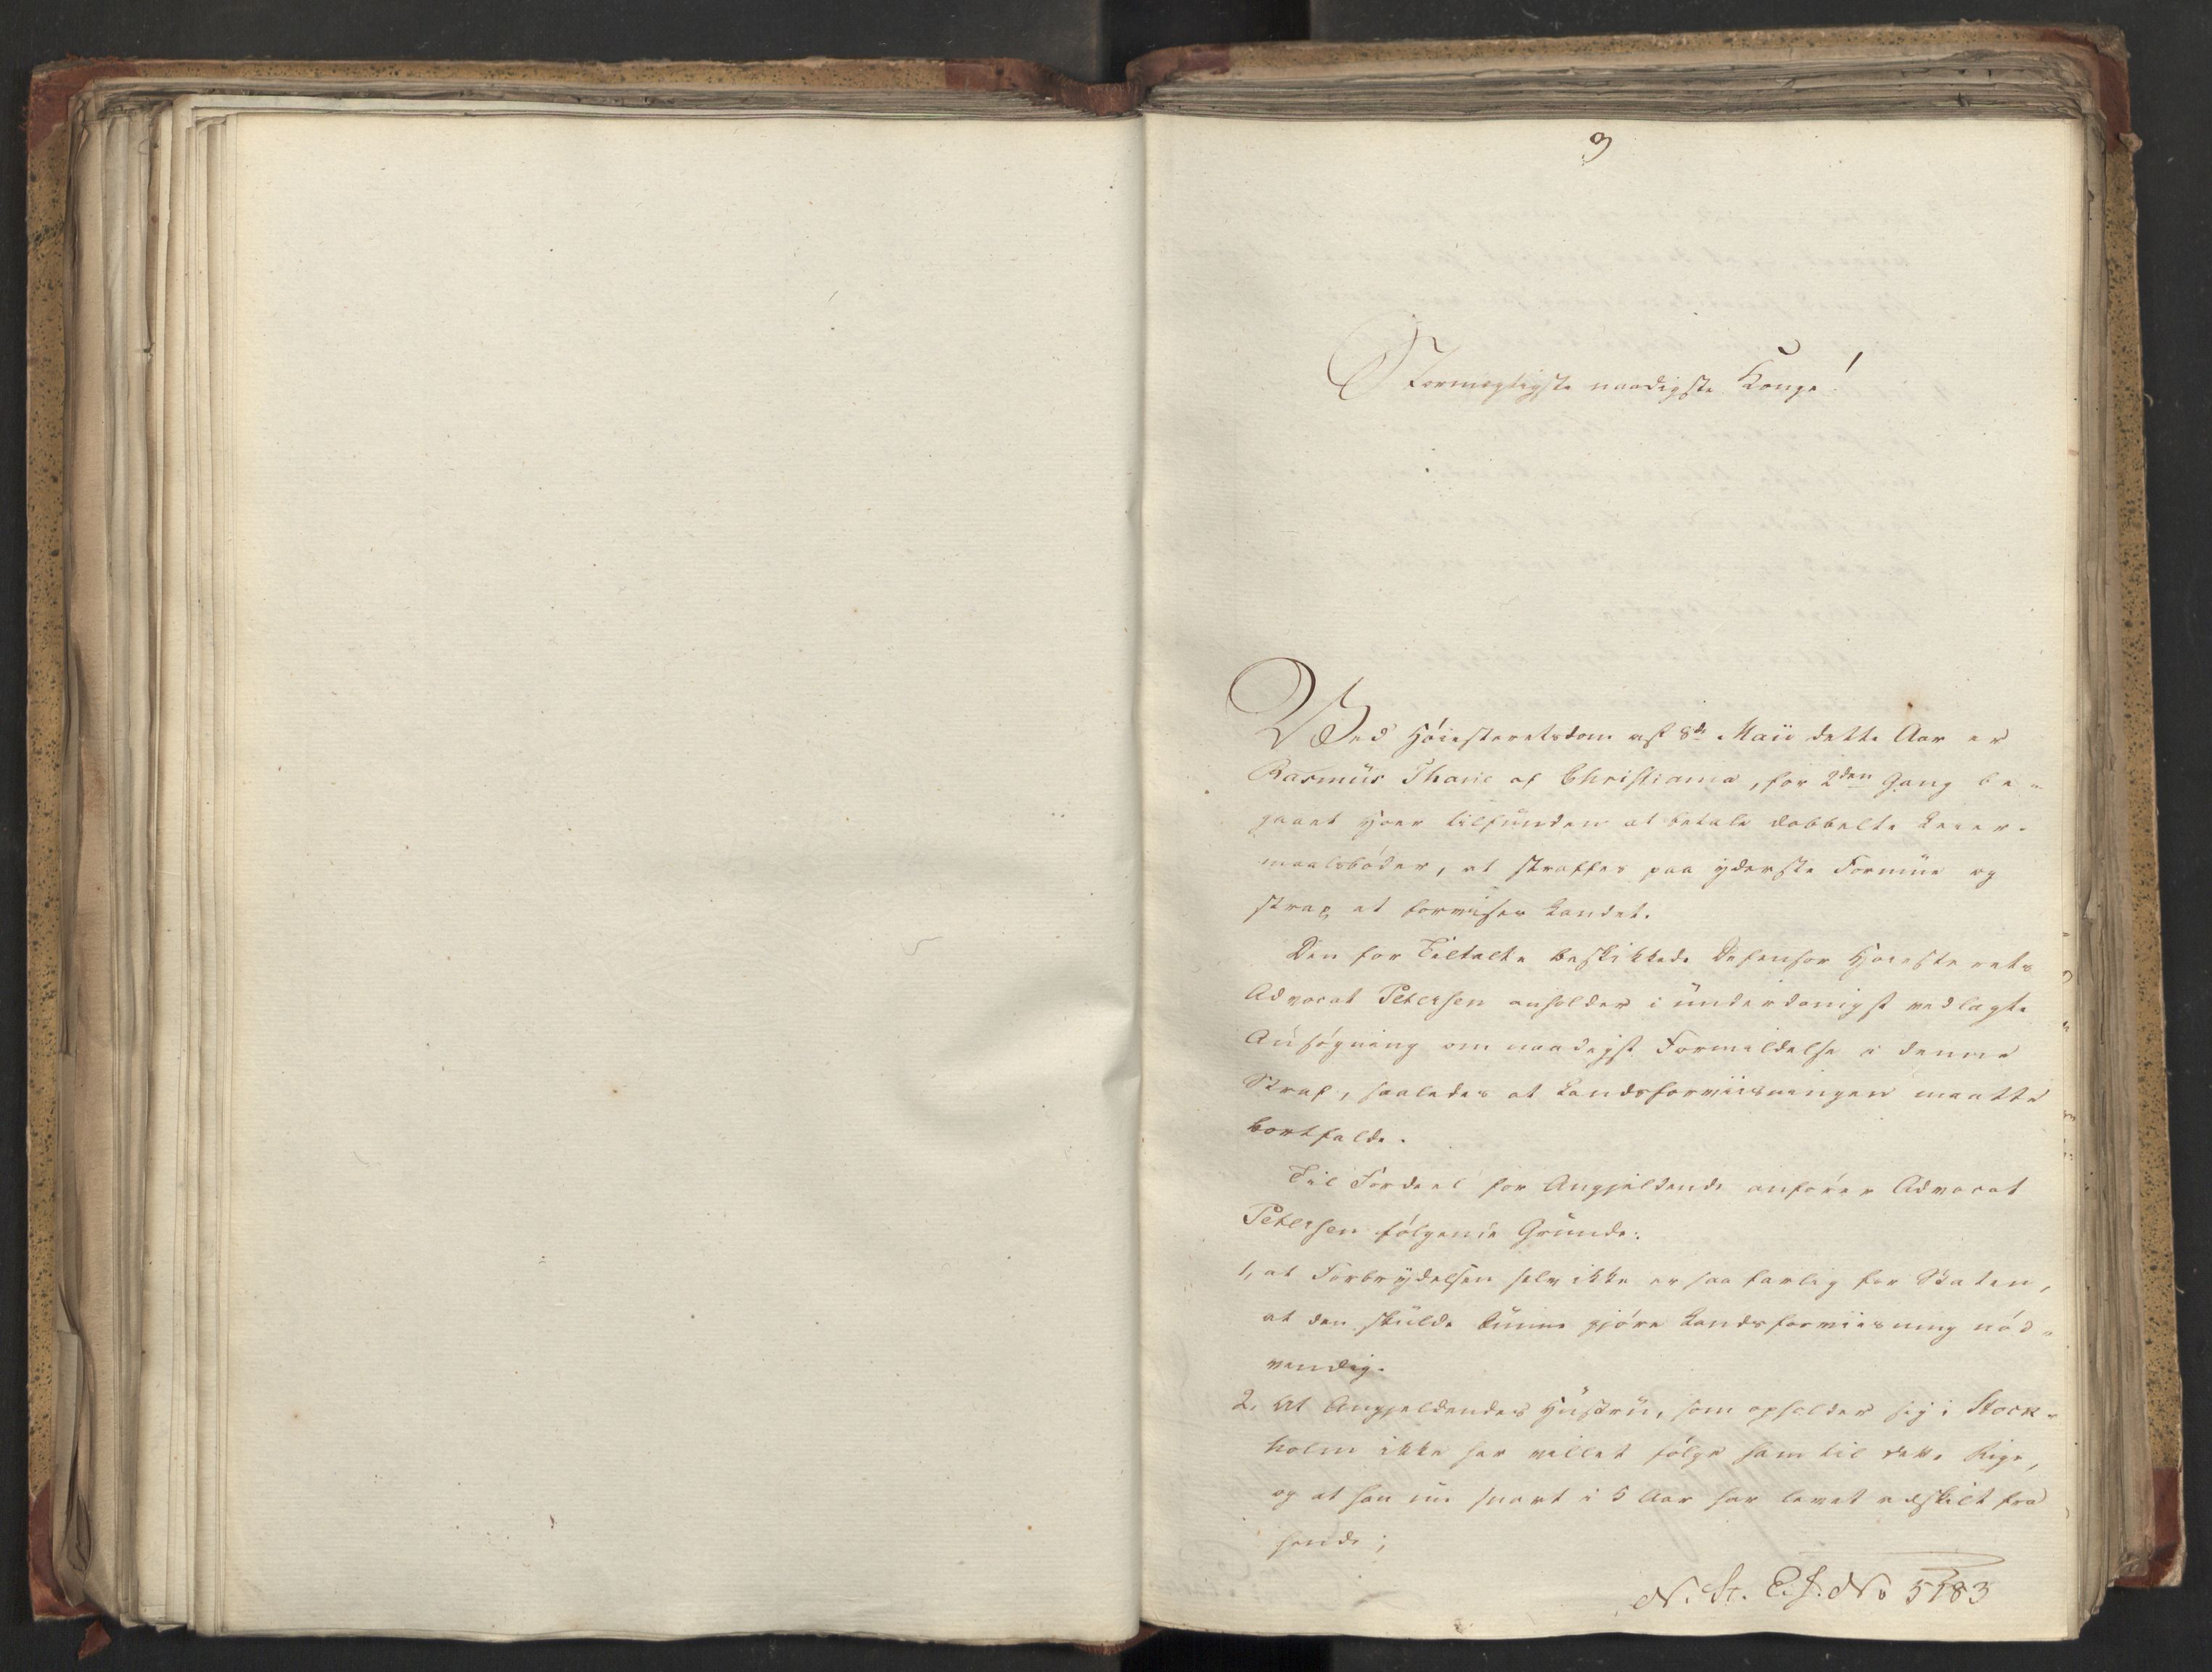 9
Stormægtigste naadigste Konge!
Ved Høiesteretsdom af 8de Maii dette Aar er
Rasmus Thane af Christiania, for 2den Gang be-
gaaet Hoer tilfunden at betale dobbelte Leier-
maalsbøder, at straffes paa yderste Formue og
strax at forvises Landet.
Den for Tiltalte beskikkede Defensor Høiesterets
Advocat Petersen anholder i underdanigst vedlagte
Ansøgning om naadigst Formildelse i denne
Straf, saaledes at Landsforviisningen maatte
bortfalde.
Til Fordeel for Angjeldende anfører Advocat
Petersen følgende Grunde:
1, at Forbrydelsen selv ikke er saa farlig for Staten,
at den skulde kunne gjøre Landsforviisning nød-
vendig.
2, At Angjeldendes Hustru, som opholder sig i Stock-
holm ikke har villet følge ham til dette Rige,
og at han nu snart i 5 Aar har levet adskilt fra
hende;
N. St. E. J. No 5183